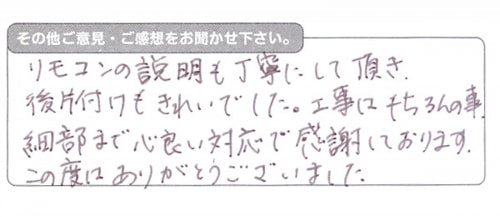 その他ご意見・ご感想をお聞かせ下さい。
リモコンの説明も丁寧にして頂き、
後片付けもきれいでした。工事はもちろんの事、
細部まで心良い対応で感謝しております。
この度はありがとうございました